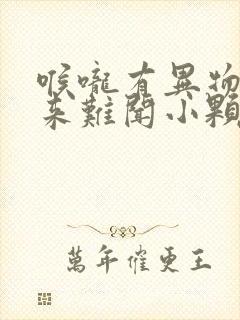 喉嚨有異物
來難聞小顆
萬年催更王